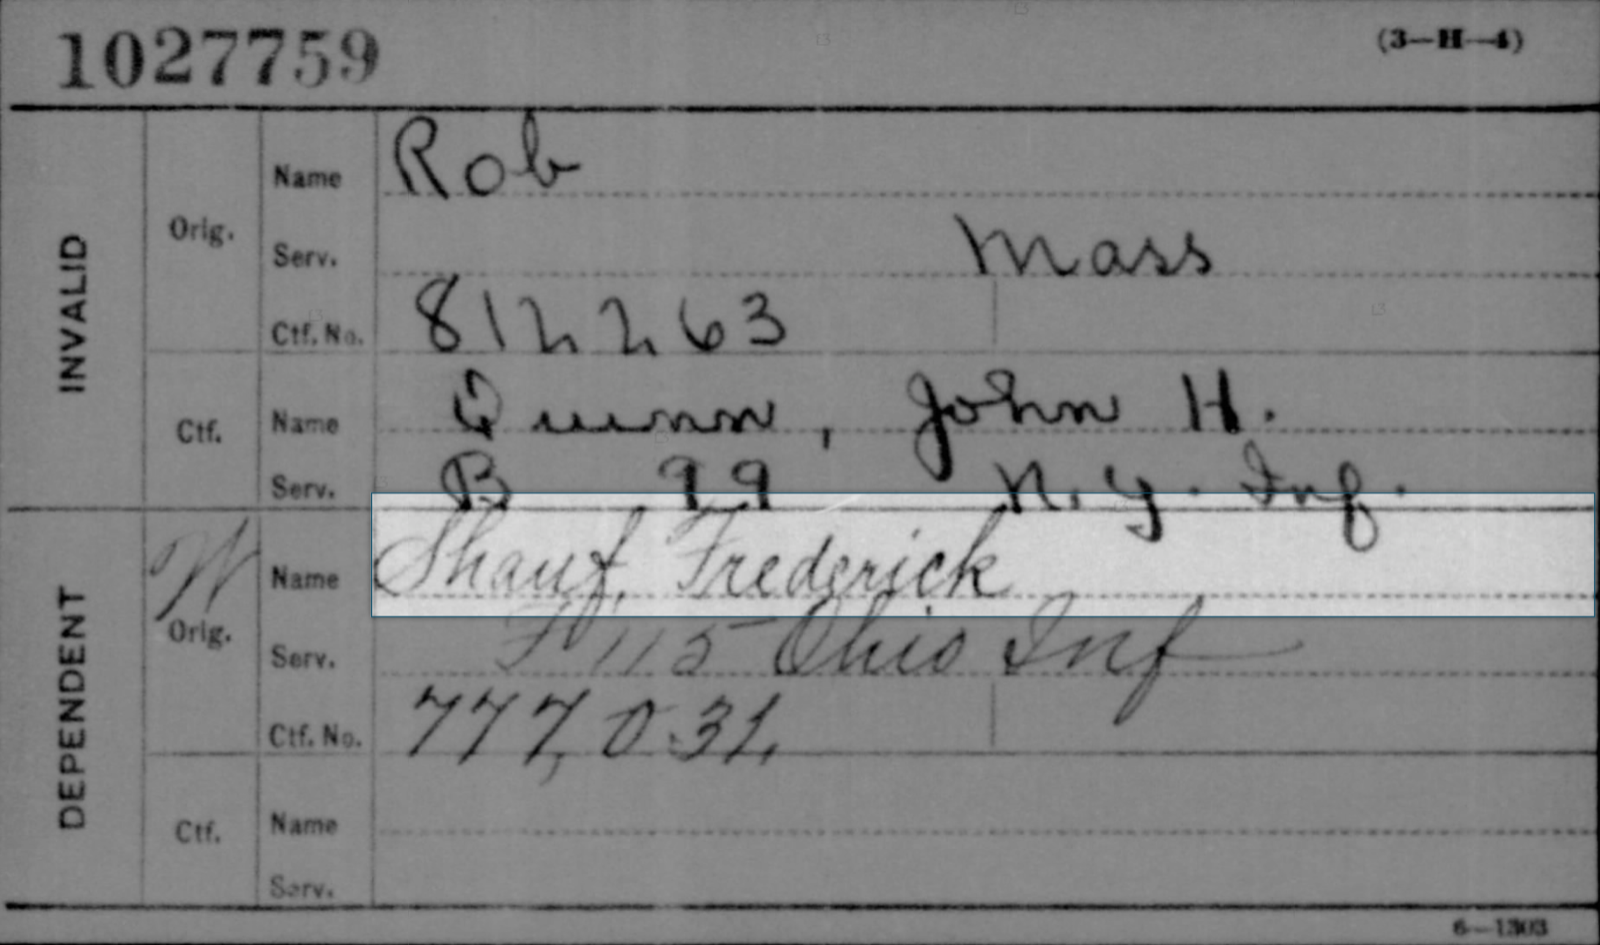 1027759 (3—H—4)
INVALID
Orig.
Name Rob
Serv. Mass
Ctf. No. 812263
Ctf.
Name Quinn, John H.
Serv. B 99 N.Y. Inf.
DEPENDENT
W
Orig.
Name Shauf, Frederick
Serv. F 115 Ohio Inf
Ctf. No. 777,031,
Ctf.
Name
Serv.
6—1303